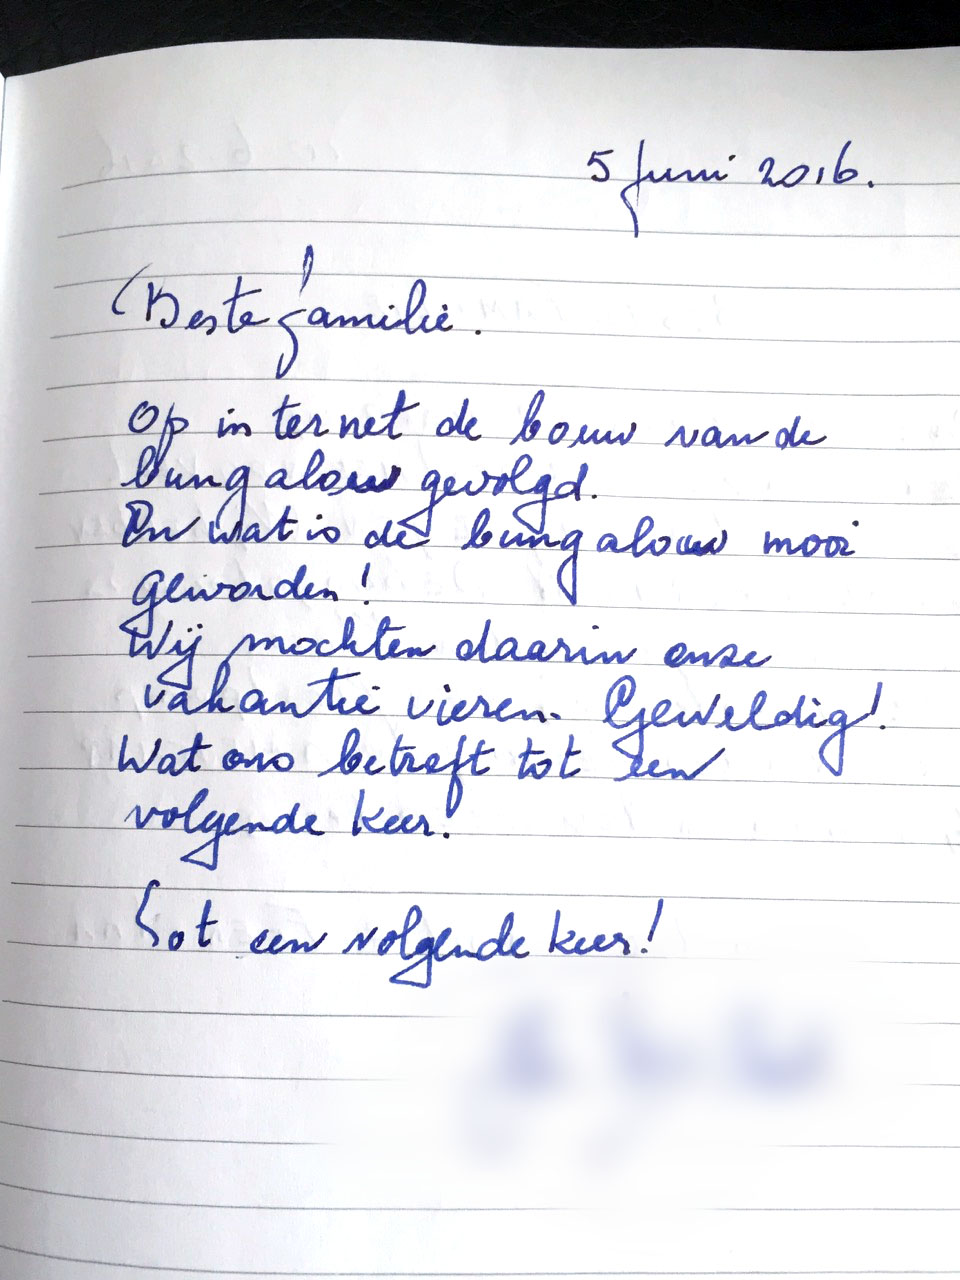 5 Juni 2016.
Beste familie.
Op internet de bouw van de
bungalouw gevolgd.
En wat is de bungalouw mooi
geworden!
Wij mochten daarin onze
vakantie vieren. Geweldig!
Wat ons betreft tot een
volgende keer!
Tot een volgende keer!